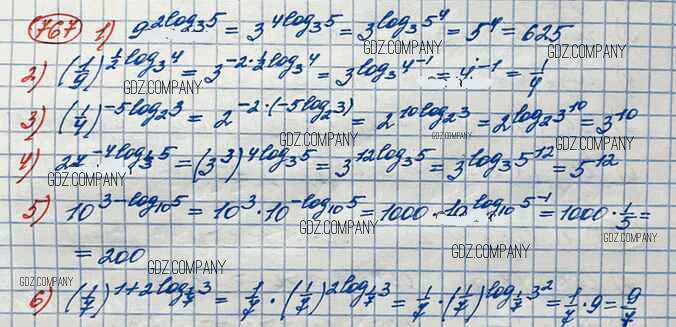 767 1) 9^{2log_3 5} = 3^{4log_3 5} = 3^{log_3 5^4} = 5^4 = 625
GDZ.COMPANY GDZ.COMPANY
2) (1/9)^{1/2 log_3 4} = 3^{-2·1/2 log_3 4} = 3^{log_3 4^{-1}} = 4^{-1} = 1/4
GDZ.COMPANY GDZ.COMPANY
3) (1/4)^{-5log_2 3} = 2^{-2·(-5log_2 3)} = 2^{10log_2 3} = 2^{log_2 3^{10}} = 3^{10}
GDZ.COMPANY GDZ.COMPANY GDZ.COMPANY
4) 27^{-4log_{1/3} 5} = (3^3)^{4log_3 5} = 3^{12log_3 5} = 3^{log_3 5^{12}} = 5^{12}
GDZ.COMPANY
5) 10^{3-log_{10} 5} = 10^3 · 10^{-log_{10} 5} = 1000 · 10^{log_{10} 5^{-1}} = 1000 · 1/5 =
GDZ.COMPANY GDZ.COMPANY
= 200
GDZ.COMPANY GDZ.COMPANY GDZ.COMPANY
6) (1/7)^{1+2log_{1/7} 3} = 1/7 · (1/7)^{2log_{1/7} 3} = 1/7 · (1/7)^{log_{1/7} 3^2} = 1/7 · 9 = 9/7